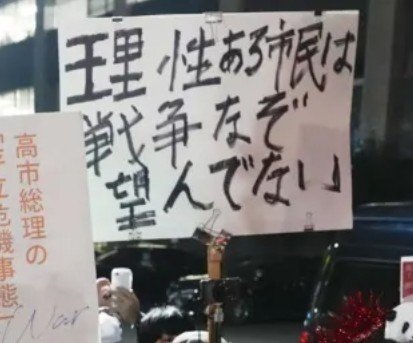 理性ある市民は
戦争なぞ
望んでない
高市総理の
存立危機事態
War